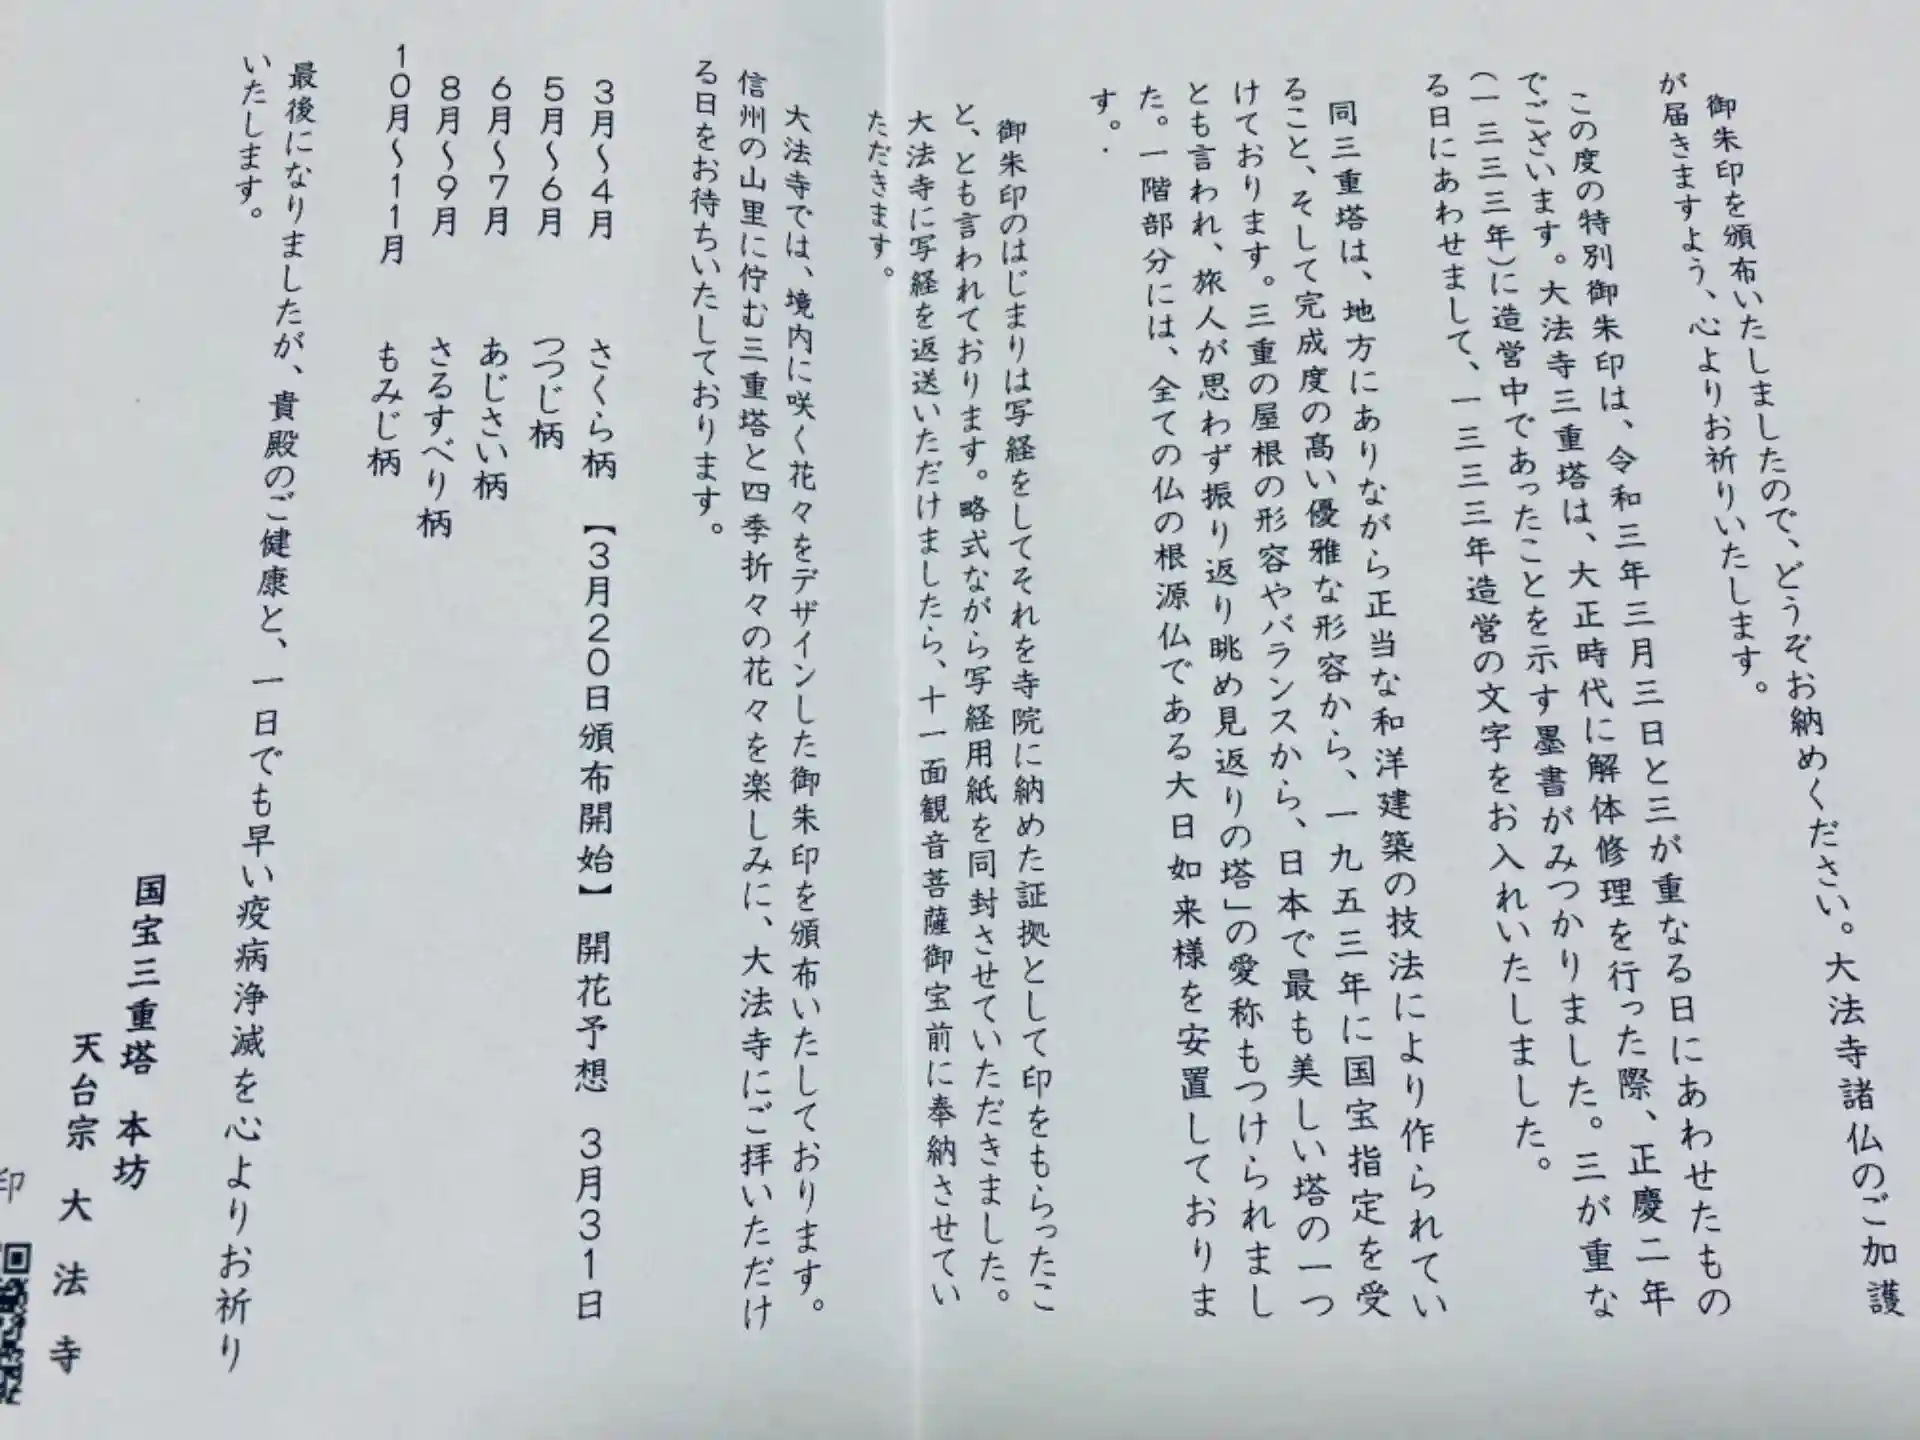 御朱印を頒布いたしましたので、どうぞお納めください。大法寺諸仏のご加護
が届きますよう、心よりお祈りいたします。
この度の特別御朱印は、令和三年三月三日と三が重なる日にあわせたもの
でございます。大法寺三重塔は、大正時代に解体修理を行った際、正慶二年
(一三三三年)に造営中であったことを示す墨書がみつかりました。三が重な
る日にあわせまして、一三三三年造営の文字をお入れいたしました。
同三重塔は、地方にありながら正当な和洋建築の技法により作られてい
ること、そして完成度の高い優雅な形容から、一九五三年に国宝指定を受
けております。三重の屋根の形容やバランスから、日本で最も美しい塔の一つ
とも言われ、旅人が思わず振り返り眺め見返りの塔」の愛称もつけられまし
た。一階部分には、全ての仏の根源仏である大日如来様を安置しておりま
す。.
御朱印のはじまりは写経をしてそれを寺院に納めた証拠として印をもらったこ
と、とも言われております。略式ながら写経用紙を同封させていただきました。
大法寺に写経を返送いただけましたら、十一面観音菩薩御宝前に奉納させてい
ただきます。
大法寺では、境内に咲く花々をデザインした御朱印を頒布いたしております。
信州の山里に佇む三重塔と四季折々の花々を楽しみに、大法寺にご拝いただけ
る日をお待ちいたしております。
3月〜4月 さくら柄 【3月20日頒布開始】 開花予想 3月31日
5月〜6月 つつじ柄
6月〜7月 あじさい柄
8月〜9月 さるすべり柄
10月〜11月 もみじ柄
最後になりましたが、貴殿のご健康と、一日でも早い疫病浄滅を心よりお祈り
いたします。
国宝三重塔 本坊
天台宗 大法寺
印